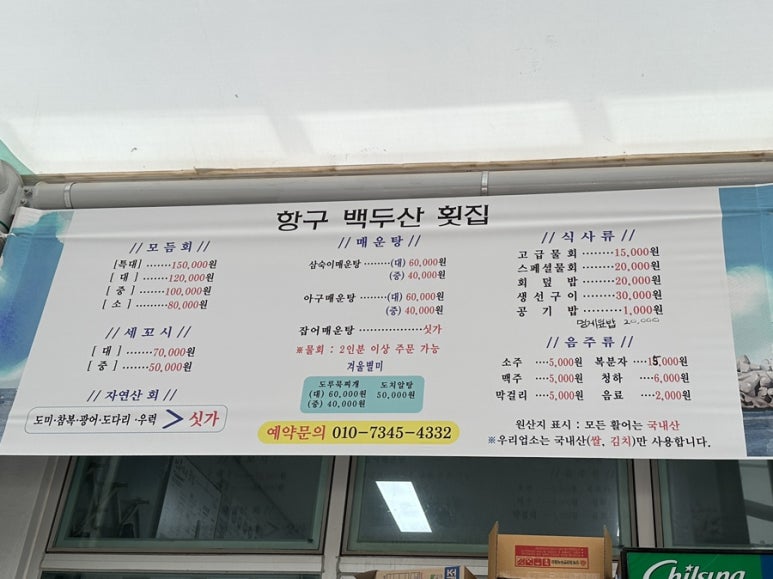 항구 백두산 횟집
// 모듬회 //
[특대] ........150,000원
[ 대 ] ........120,000원
[ 중 ] ........100,000원
[ 소 ] .........80,000원
// 세꼬시 //
[ 대 ] .......70,000원
[ 중 ] .......50,000원
// 자연산 회 //
도미·참복·광어·도다리·우럭 > 싯가
// 매운탕 //
삼숙이매운탕 ........(대) 60,000원
(중) 40,000원
아구매운탕 ........(대) 60,000원
(중) 40,000원
잡어매운탕 ..................싯가
※물회 : 2인분 이상 주문 가능
겨울별미
도루묵찌개 도치알탕
(대) 60,000원 50,000원
(중) 40,000원
예약문의 010-7345-4332
// 식사류 //
고급물회.........15,000원
스페셜물회........20,000원
회덮밥.........20,000원
생선구이.........30,000원
공기밥.........1,000원
멍게덮밥 20,000
// 음주류 //
소주 ....5,000원 복분자 ....15,000원
맥주 ....5,000원 청하 ....6,000원
막걸리 ....5,000원 음료 ....2,000원
원산지 표시 : 모든 활어는 국내산
※우리업소는 국내산(쌀, 김치)만 사용합니다.
Chilsung